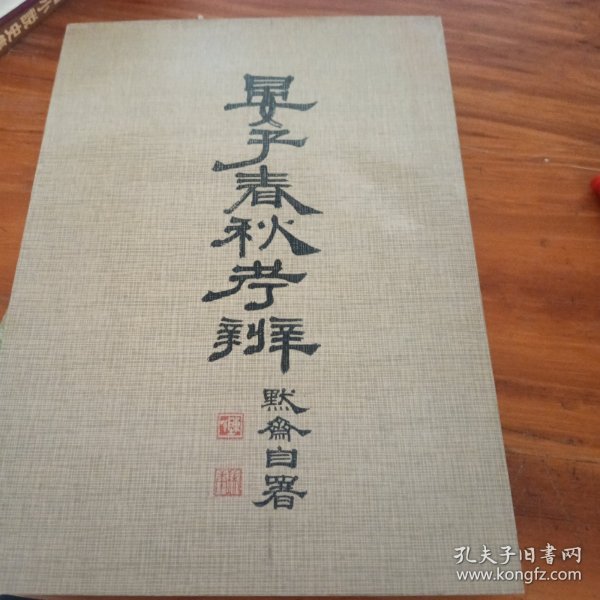 晏子春秋考辨
默齋自署
孔夫子旧書网
www.kongfz.com